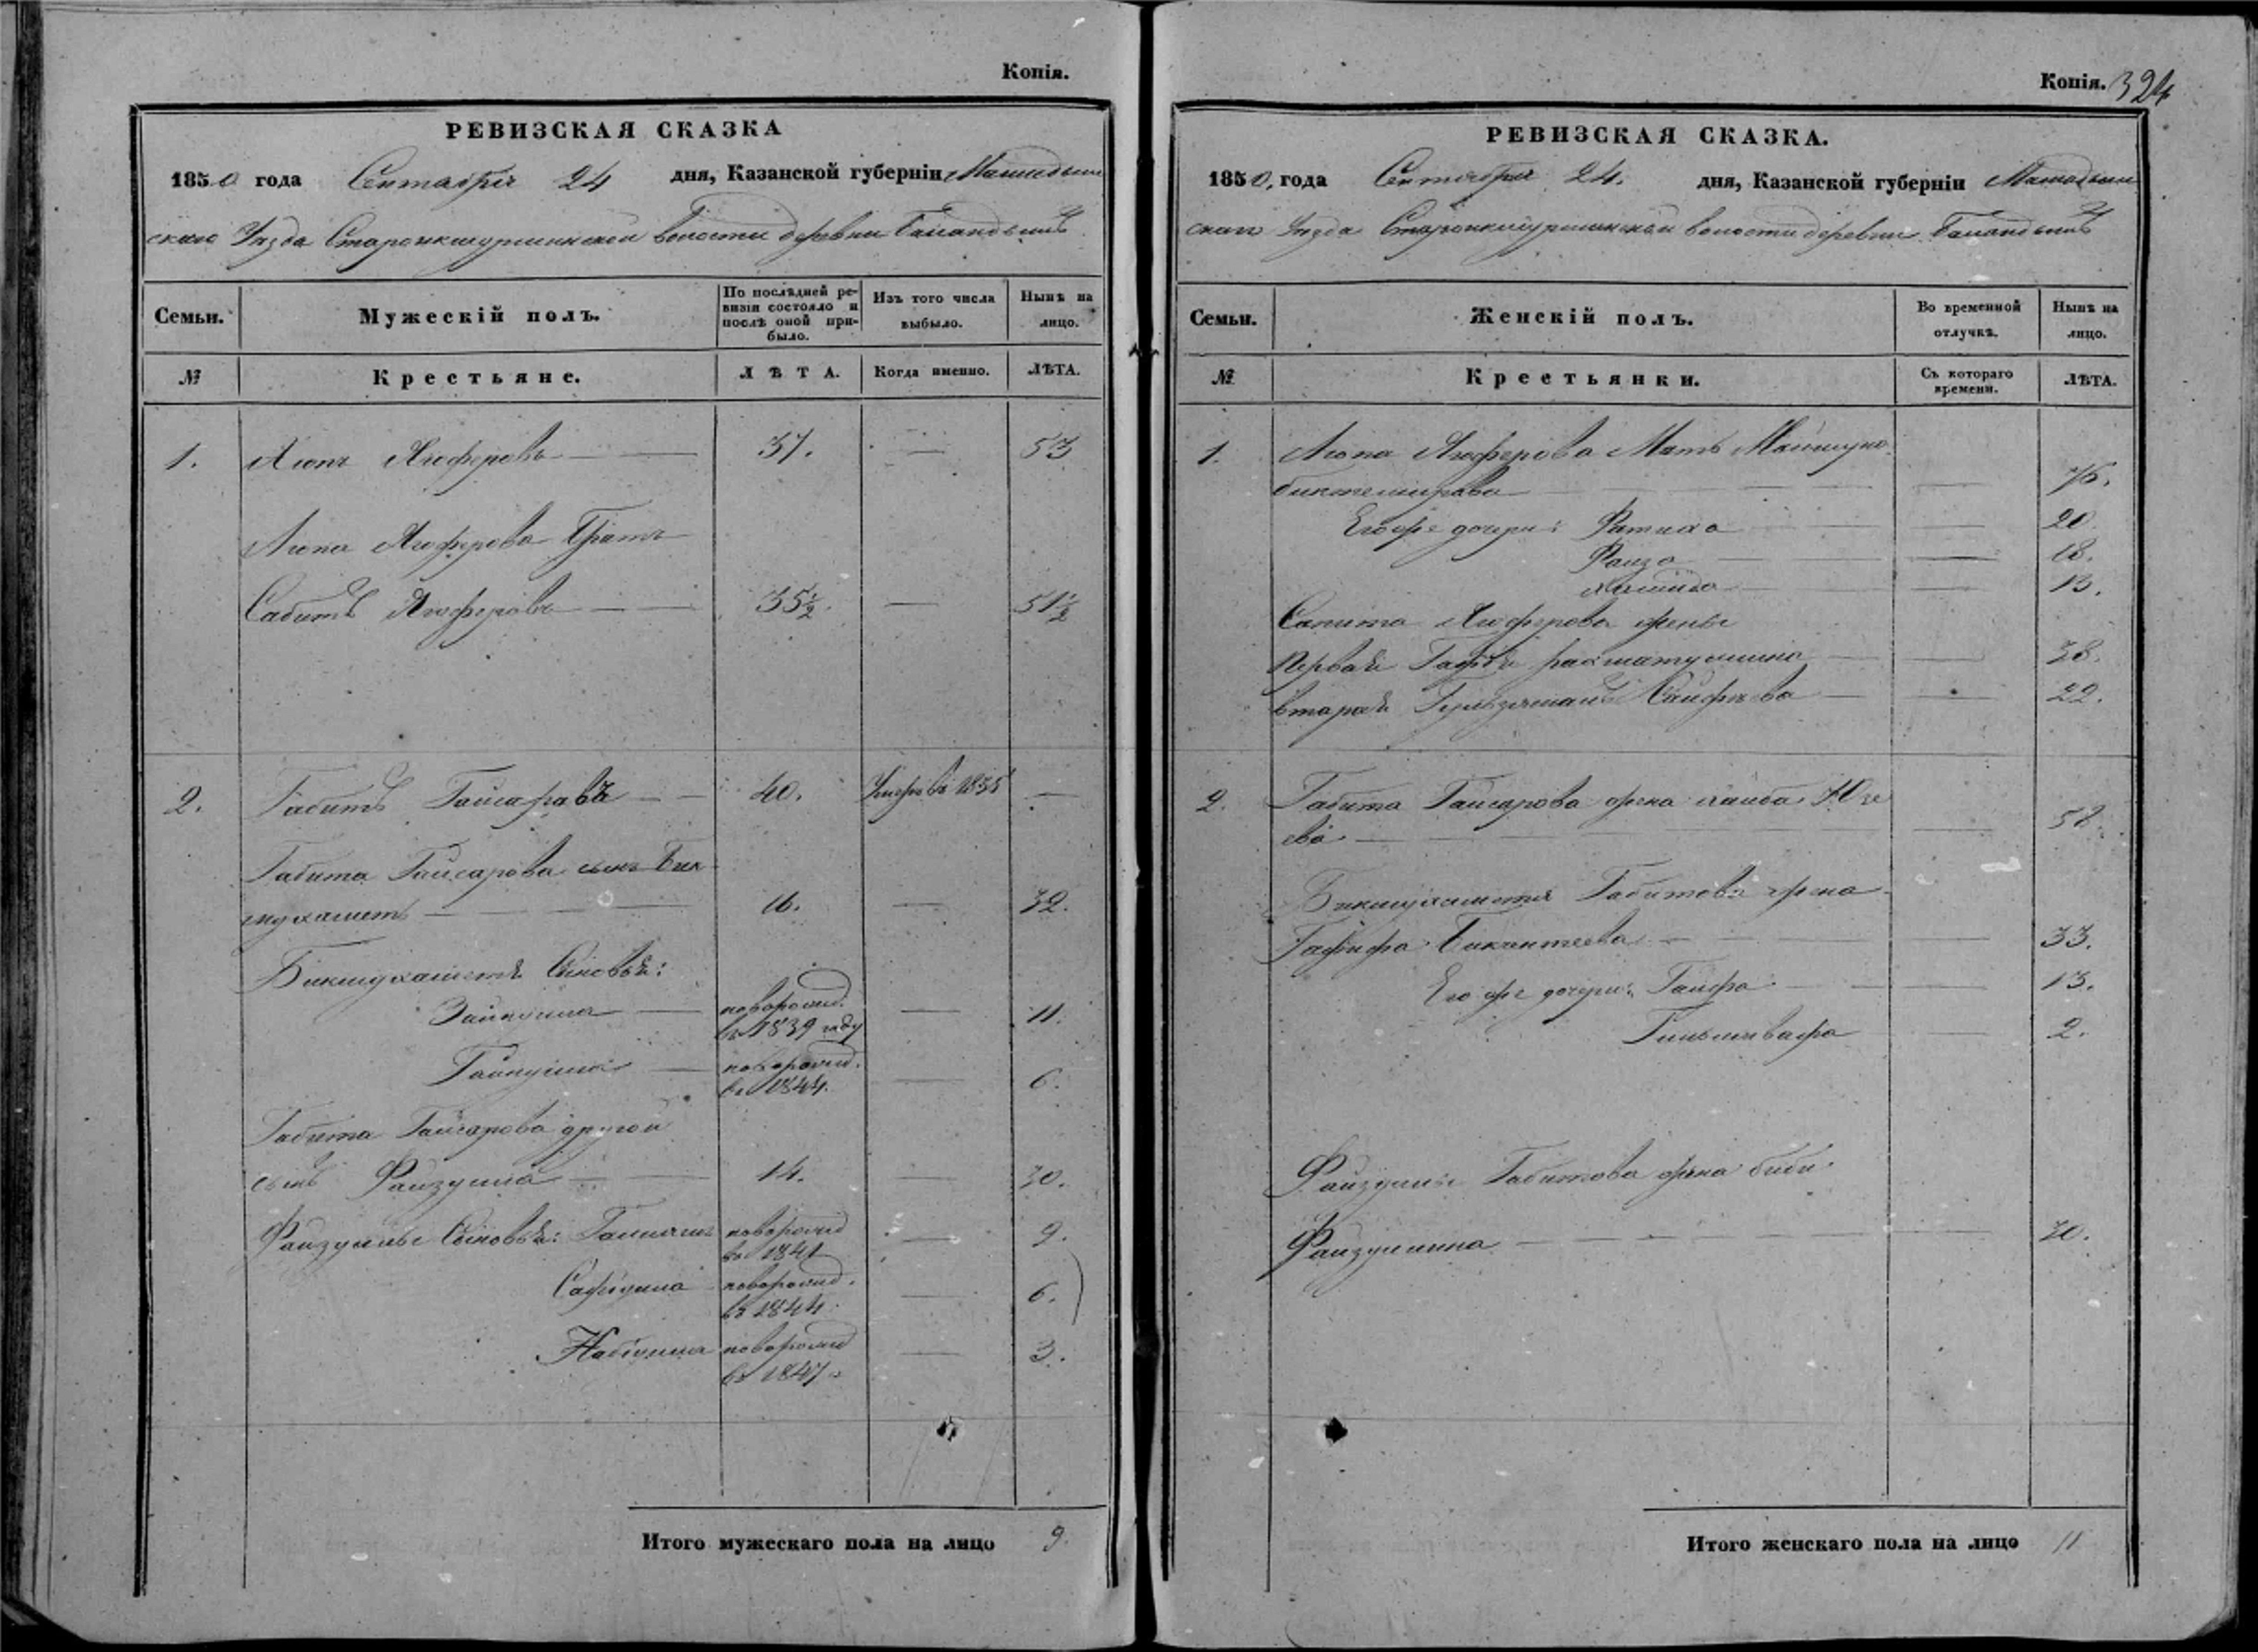 Копія.
РЕВИЗСКАЯ СКАЗКА
1850 года Сентября 24 дня, Казанской губерніи Мамадыш
скаго Уезда Староикшурминской волости деревни
Семьи.
Мужескій полъ.
По послѣдней ре-
визіи состояло и
послѣ оной при-
было.
Изъ того числа
выбыло.
Нынѣ на
лицо.
№
Крестьяне.
ЛѢТА.
Когда именно.
ЛѢТА.
1. Аюпъ Ягоферовъ — 37. — 53
Аюпа Ягоферова Братъ
Сабитъ Ягоферовъ — 35½. — 51½
2. Габитъ Гайсаровъ — 40. Умеръ въ 1835 —
Габита Гайсарова сынъ Бик
мухаметъ — 16. — 32.
Бикмухаметя Сыновья:
новорожд.
въ 1839 году — 11.
новорожд.
въ 1844. — 6.
Габита Гайсарова другой
сынъ Файзулла — 14. — 30.
Файзуллы Сыновья: новорожд
въ 1841 — 9.
Сафиулла новорожд.
въ 1844. — 6.
Набиулла новорожд
въ 1847. — 3.
Итого мужескаго пола на лицо 9.
Копія. 324
РЕВИЗСКАЯ СКАЗКА.
1850, года Сентября 24. дня, Казанской губерніи Мамадыш
скаго Уезда Староикшурминской волости деревни
Семьи.
Женскій полъ.
Во временной
отлучкѣ.
Нынѣ на
лицо.
№
Крестьянки.
Съ котораго
времени.
ЛѢТА.
1. Аюпа Ягоферова Мать
биктемирова — — 76.
Егоже дочери: Фатиха — 20.
Фаиза — 18.
13.
Сапита Ягоферова жены
первая рахматуллина — — 38.
вторая Сайфѣва — — 22.
2. Габита Гайсарова жена Юзе
ева — — 58.
Бикмухаметя Габитова жена
Гафифа — — 33.
Его же дочери: Гайфа — — 13.
— 2.
Файзуллы Габитова жена биби
Файзуллина — — 30.
Итого женскаго пола на лицо 11